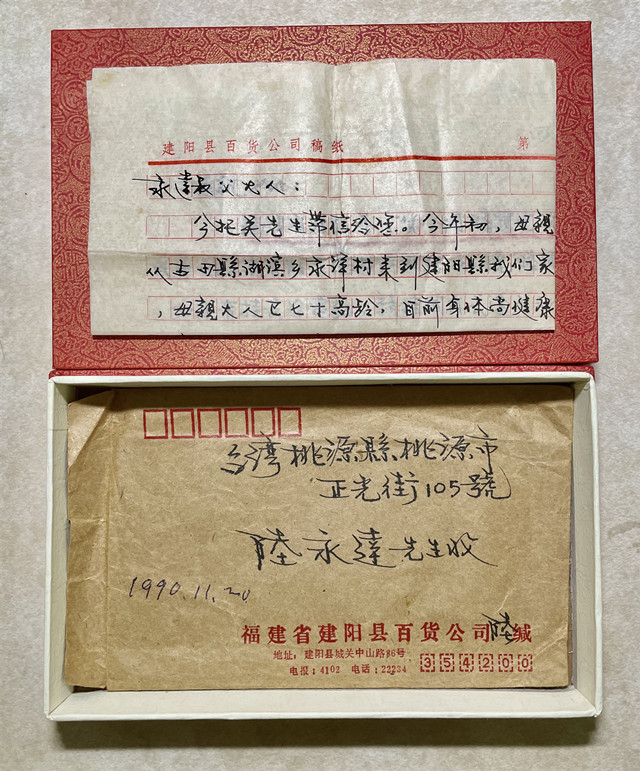 建阳县百货公司稿纸 第
永達叔父大人：
今托吴先生带信给您。今年初，母親
从古田縣湖滨乡永洋村来到建阳縣我们家
，母親大人已七十高龄，目前身体尚健康
台湾桃源縣桃源市
正光街105號
陸永達先生收
1990.11.20
福建省建阳县百货公司陸缄
地址：建阳县城关中山路86号
电报：4102 电话：22234
354200